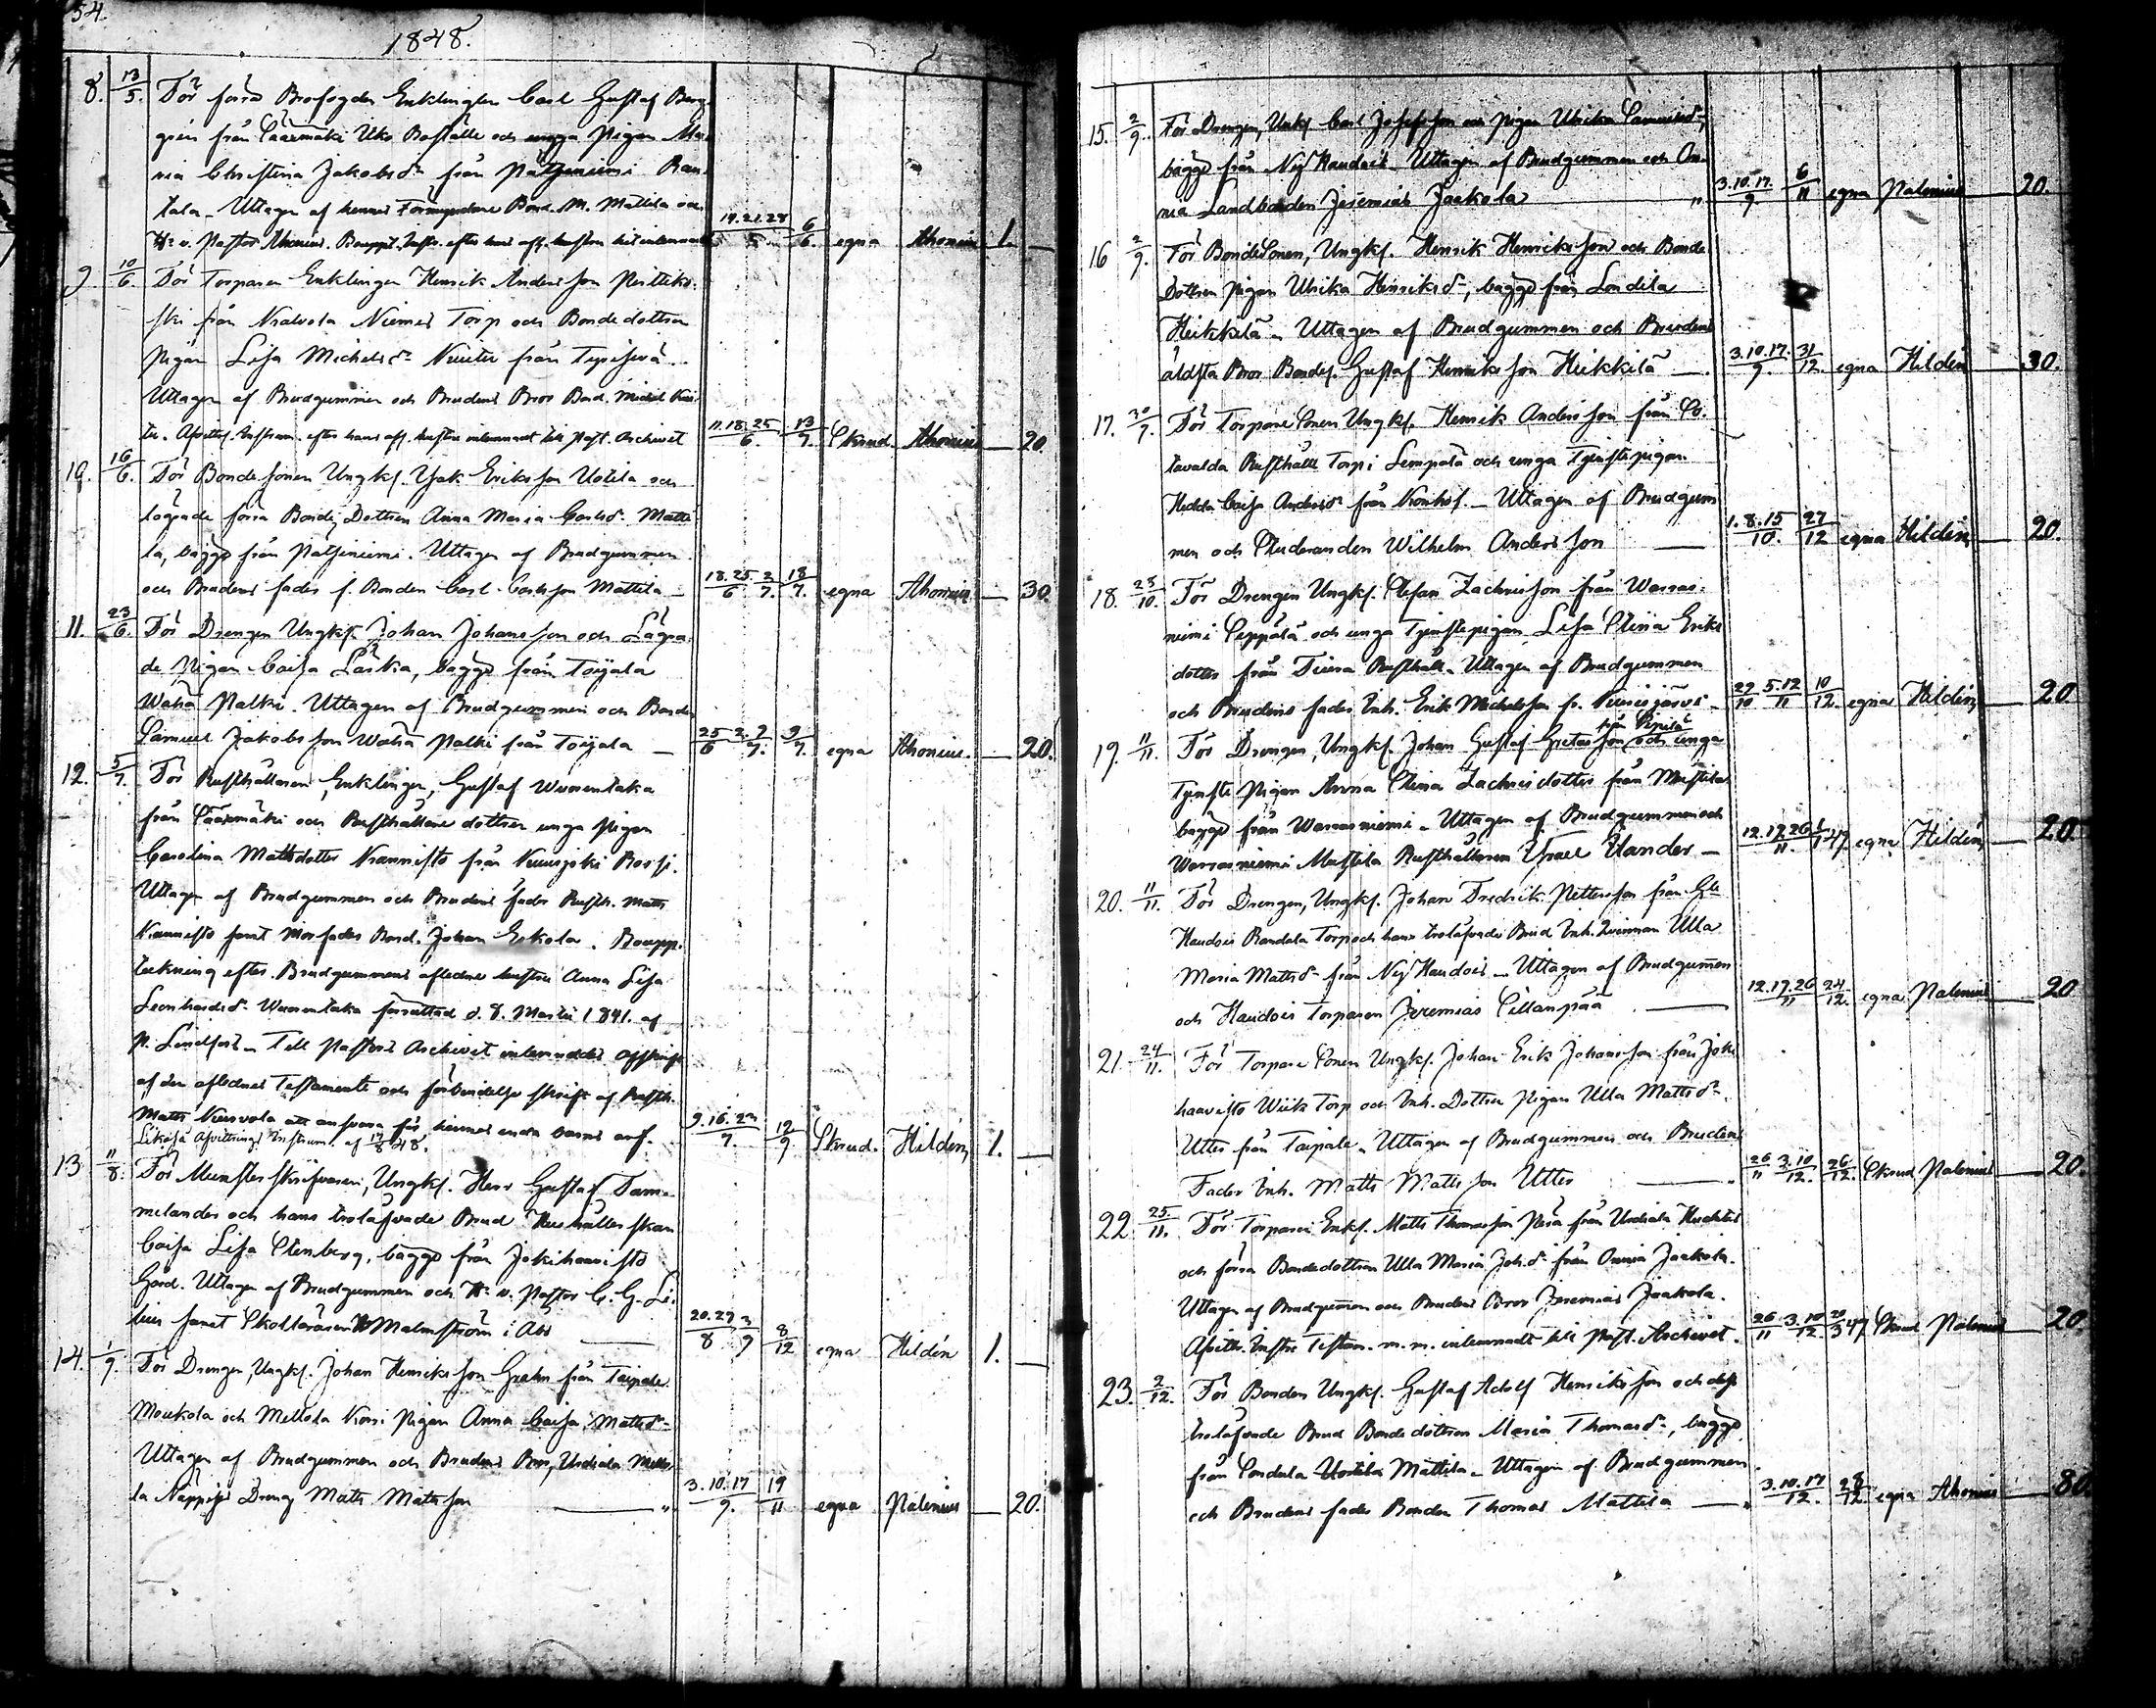 54.
1848.
8. 13/5. För förra Brofogden Enklingen Carl Gustaf Berg-
grén från Säärmäki Uko Boställe och unga Pigan Ma-
ria Christina Jakobsdr från Patjeniemi Ran-
tala _ Uttagen af hennes Förmyndare Bond. M. Mattila och
Hr v. Pastor Ahonius. 14.21.28/5 6/6. egna Ahonius 1. _
9. 10/6. För Torparen Enklingen Henrik Andersson
från Niemis Torp och Bondedottren
Pigan Lisa Michelsdr från
Uttagen af Brudgummen och Brudens Bror Bond. Michel
efter hans afl. hustru inlemnadt till Past. Archivet 11.18.25/6. 13/7. Skrud Ahonius _ 20.
10. 16/6. För Bondesonen Ungk. Isak Eriksson Uotila och
lägrade förra Bonde Dottren Anna Maria Carlsdr Matti-
la, bägge från Patjeniemi. Uttagen af Brudgummen
och Brudens fader f. Bonden Carl Carlsson Mattila _ 18.25/6 2/7. 18/7. egna Ahonius _ 30.
11. 23/6. För Drengen Ungk. Johan Johansson och Lägra-
de Pigan Caisa Laska, bägge från Toijala
Wähä Palki. Uttagen af Brudgummen och Bonden
Samuel Jakobsson Wähä Palki från Toijala _ 25/6 2.9/7. 9/7. egna Ahonius. _ 20.
12. 5/7. För Rusthållaren, Enklingen, Gustaf Wuorentaka
från Säärmäki och Rusthållare dottren unga Pigan
Carolina Mattsdotter Kannisto från
Uttagen af Brudgummen och Brudens fader Rusth. Matts
Kannisto samt Morfader Bond. Johan Eskola. Boupp-
teckning efter Brudgummens afledne hustru Anna Lisa
Leonhardsdr Wuorentaka förrättad d. 8. Martii 1841. af
P. Lindfors _ Till Pastors Archivet inlemnades afskrift
af den aflednes Testamente och förbindelse skrift af Rusth.
Matts att ansvara för hennes enda barns arf. 9.16.23/7. 12/9. Skrud. Hildén, 1. _
Likaså Afvittrings Instrum. af 17/8 48.
13. 11/8. För Mönsterskrifvaren, Ungk. Herr Gustaf Tam-
melander och hans trolofvade Brud Hushållerskan
Caisa Lisa Stenberg, bägge från Jokihaavisto
Gård. Uttagen af Brudgummen och Hr v. Pastor C. G. Li-
lius samt Skolläraren Malmström i Åbo 20.27/8 3/9 8/12 egna Hildén 1. _
14. 1/9. För Drengen, Ungk. Johan Henriksson Grahn från Taipale
Moukola och Mellola Korsi Pigan Anna Caisa Mattsdr
Uttagen af Brudgummen och Brudens Bror, Urdiala Mello-
la Näppigs Dreng Matts Mattsson 3.10.17/9. 19/11 egna Palenius _ 20.
15. 2/9. För Drengen, Ungk. Carl Josefsson och Pigan Ulrika
bägge från Ny Haudois _ Uttagen af Brudgummen och On-
nia Landbonden Jeremias Jaakola 3.10.17./9 6/11 egna Palenius _ 20.
16 2/9. För Bonde Sonen, Ungk. Henrik Henriksson och Bonde
Dottren Pigan Ulrika Henriksdr, bägge från Sondila
Heikkilä _ Uttagen af Brudgummen och Brudens
äldsta Bror Bonden Gustaf Henriksson Heikkilä _ 3.10.17./9. 31/12. egna Hildén _ 30.
17. 30/7. För Torpare Sonen Ungk. Henrik Andersson från So-
tavalda Rusthålls Torp i Lempälä och unga Tjenstepigan
Hedda Caisa Andersdr från _ Uttagen af Brudgum-
men och Studeranden Wilhelm Andersson 1.8.15/10. 27/12 egna Hildén _ 20.
18. 28/10. För Drengen Ungk. Stefan Zachrisson från Warras-
niemi Seppälä och unga Tjenstepigan Lisa Stina Eriks-
dotter från Rusthåll _ Uttagen af Brudgummen
och Brudens fader Inh. Erik Michelsson fr. 29/10 5.12/11 10/12. egna Hildén _ 20
19. 11/11. För Drengen, Ungk. Johan Gustaf Gretasson och unga
Tjenste Pigan Anna Stina Zachrisdotter från Mustila
bägge från Warrasniemi _ Uttagen af Brudgummen och
Warrasniemi Mustila Rusthållaren Israel Elander _ 12.19.26/11. egna Hildén _ 20
20. 11/11. För Drengen, Ungk. Johan Fredrik Pettersson från Gle
Haudois Randala Torp och hans trolofvade Brud Inh. Qvinnan Ulla
Maria Mattsdr från Ny Haudois _ Uttagen af Brudgummen
och Haudois Torparen Jeremias Sillanpää 12.19.26/11 24/12. egna Palenius _ 20
21. 24/11. För Torpare Sonen Ungk. Johan Erik Johansson från Joki-
haavisto Wiik Torp och Inh. Dottren Pigan Ulla Mattsdr
Utter från Taipale. Uttagen af Brudgummen och Brudens
Fader Inh. Matts Mattsson Utter 26/11 3.10/12. 26/12. Skrud Palenius _ 20.
22. 25/11. För Torparen Enkl. Matts Thomasson från Urdiala
och förra Bondedottren Ulla Maria Joh.dr från Onnia Jaakola.
Uttagen af Brudgummen och Brudens Bror Jeremias Jaakola.
Afvittr. Instr. Testam. m.m. inlemnadt till Past. Archivet. 26/11 3.10/12. Skrud Palenius _ 20
23. 2/12. För Bonden Ungk. Gustaf Adolf Henriksson och dess
trolofvade Brud Bondedottren Maria Thomasdr, bägge
från Sondala Uotila Mattila _ Uttagen af Brudgummen
och Brudens fader Bonden Thomas Mattila _ 3.10.17/12. 28/12. egna Ahonius _ 80.